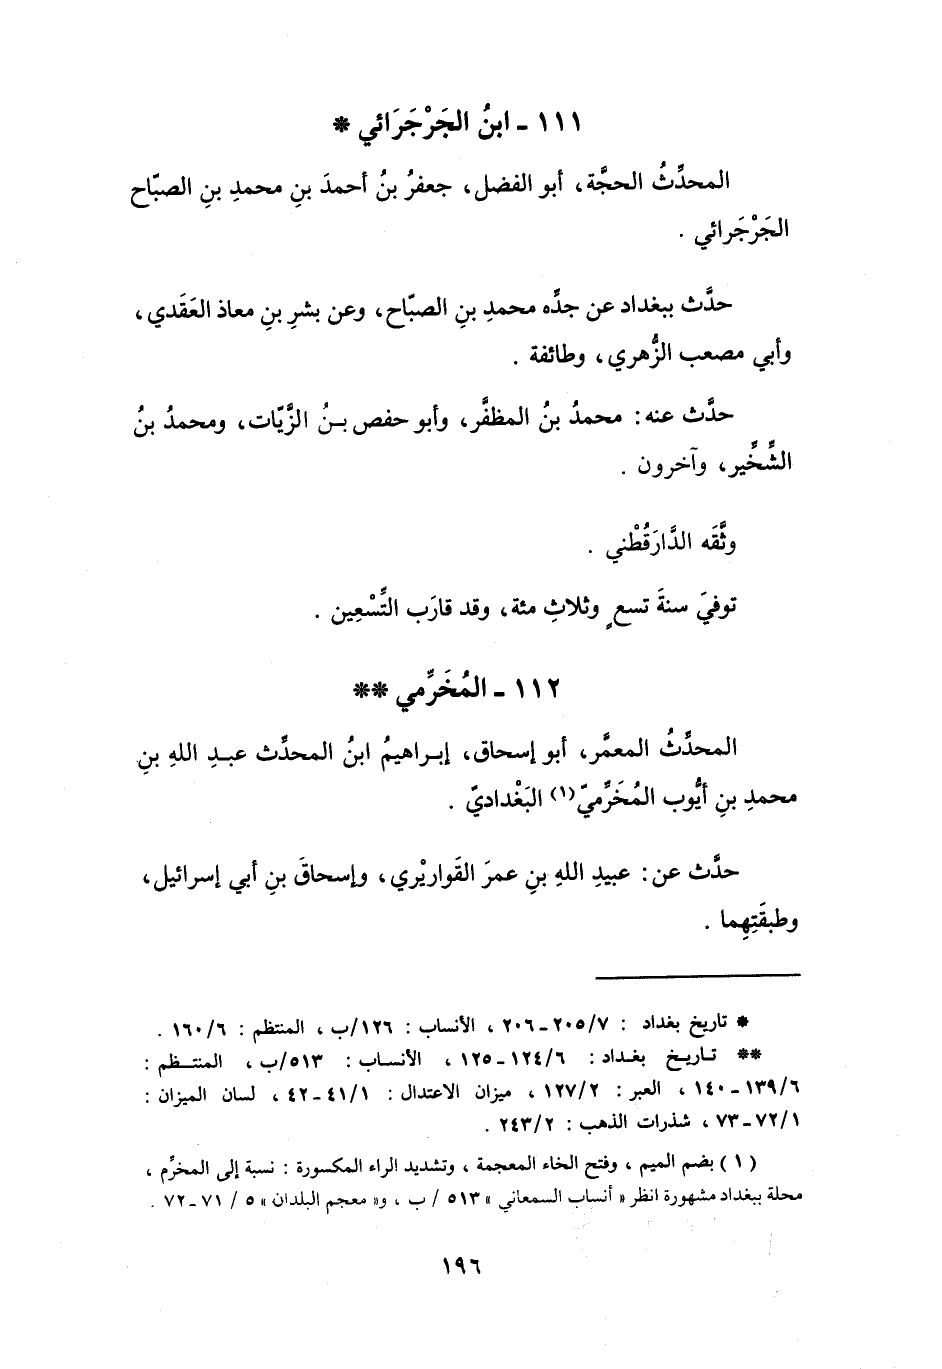 ١١١ - ابنُ الجَرْجَرَائي *
المحدِّثُ الحجَّة، أبو الفضل، جعفرُ بنُ أحمدَ بنِ محمدِ بنِ الصبّاح
الجَرْجَرائي .
حدَّث ببغداد عن جدِّه محمدِ بنِ الصبّاح، وعن بشرِ بنِ معاذ العَقَدي،
وأبي مصعب الزُّهري، وطائفة .
حدَّث عنه: محمدُ بنُ المظفَّر، وأبو حفص بـنُ الزَّيّات، ومحمدُ بنُ
الشِّخِّير، وآخرون .
وثَّقَه الدَّارَقُطْني .
توفيَ سنةَ تسعٍ وثلاثِ مئة، وقد قارَب التِّسْعِين .
١١٢ - المُخَرِّمي **
المحدِّثُ المعمَّر، أبو إسحاق، إبـراهيمُ ابنُ المحدِّث عبـدِ اللهِ بنِ
محمدِ بنِ أيُّوب المُخَرِّميّ(١) البَغْداديّ .
حدَّث عن: عبيدِ اللهِ بنِ عمرَ القَواريْري، وإسحاقَ بنِ أبي إسرائيل،
وطبقَتِهِما .
* تاريخ بغداد : ٢٠٥/٧-٢٠٦ ، الأنساب : ١٢٦/ب ، المنتظم : ١٦٠/٦ .
** تـاريـخ بغـداد: ١٢٤/٦-١٢٥ ، الأنسـاب: ٥١٣/ب ، المنتـظم :
١٣٩/٦-١٤٠ ، العبر: ١٢٧/٢ ، ميزان الاعتدال : ٤١/١-٤٢ ، لسان الميزان :
٧٢/١-٧٣ ، شذرات الذهب : ٢٤٣/٢ .
(١) بضم الميم ، وفتح الخاء المعجمة ، وتشديد الراء المكسورة : نسبة إلى المخرِّم ،
محلة ببغداد مشهورة انظر « أنساب السمعاني » ٥١٣ / ب ، و« معجم البلدان » ٥ / ٧١-٧٢ .
١٩٦